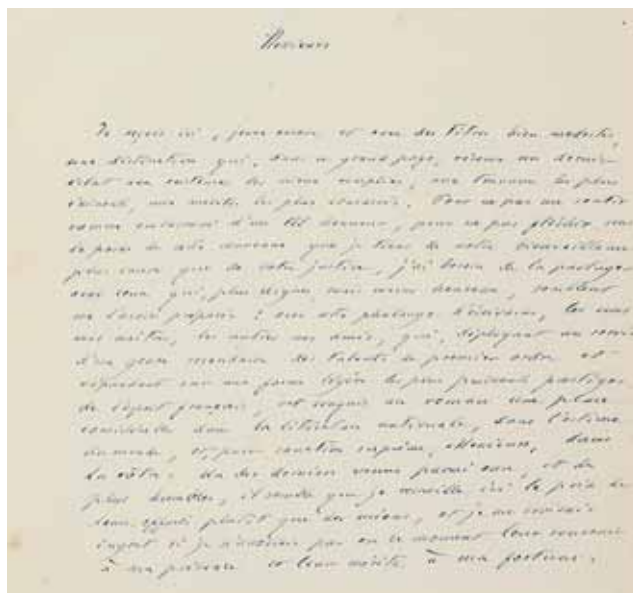 Messieurs
Je reçois ici, jeune encore et avec des titres bien modestes,
une distinction qui, dans ce grand pays, donne un dernier
éclat aux existences les mieux remplies, aux travaux les plus
éminents, aux mérites les plus
comme d'un tel honneur, pour ne pas
le poids de cette couronne que je tiens de votre bienveillance
plus encore que de votre justice, j'ai besoin de la partager
avec ceux qui, plus dignes mais moins heureux, semblent
me l'avoir préparée : avec cette phalange d'écrivains, les uns
mes maîtres, les autres mes amis, qui, déployant au service
d'un genre secondaire des talents de premier ordre et
répandant sur une forme légère les plus puissants prestiges
de l'esprit français, ont conquis au roman une place
considérable dans la littérature nationale, dans l'estime
du monde, et, pour sanction suprême, Messieurs, dans
la vôtre. Un des derniers venus parmi eux, et des
plus humbles, il semble que je recueille ici le prix de
leurs plutôt que des miens, et je me croirais
ingrat si je n'associais pas en ce moment leur souvenir
à ma présence et leur mérite à ma fortune.